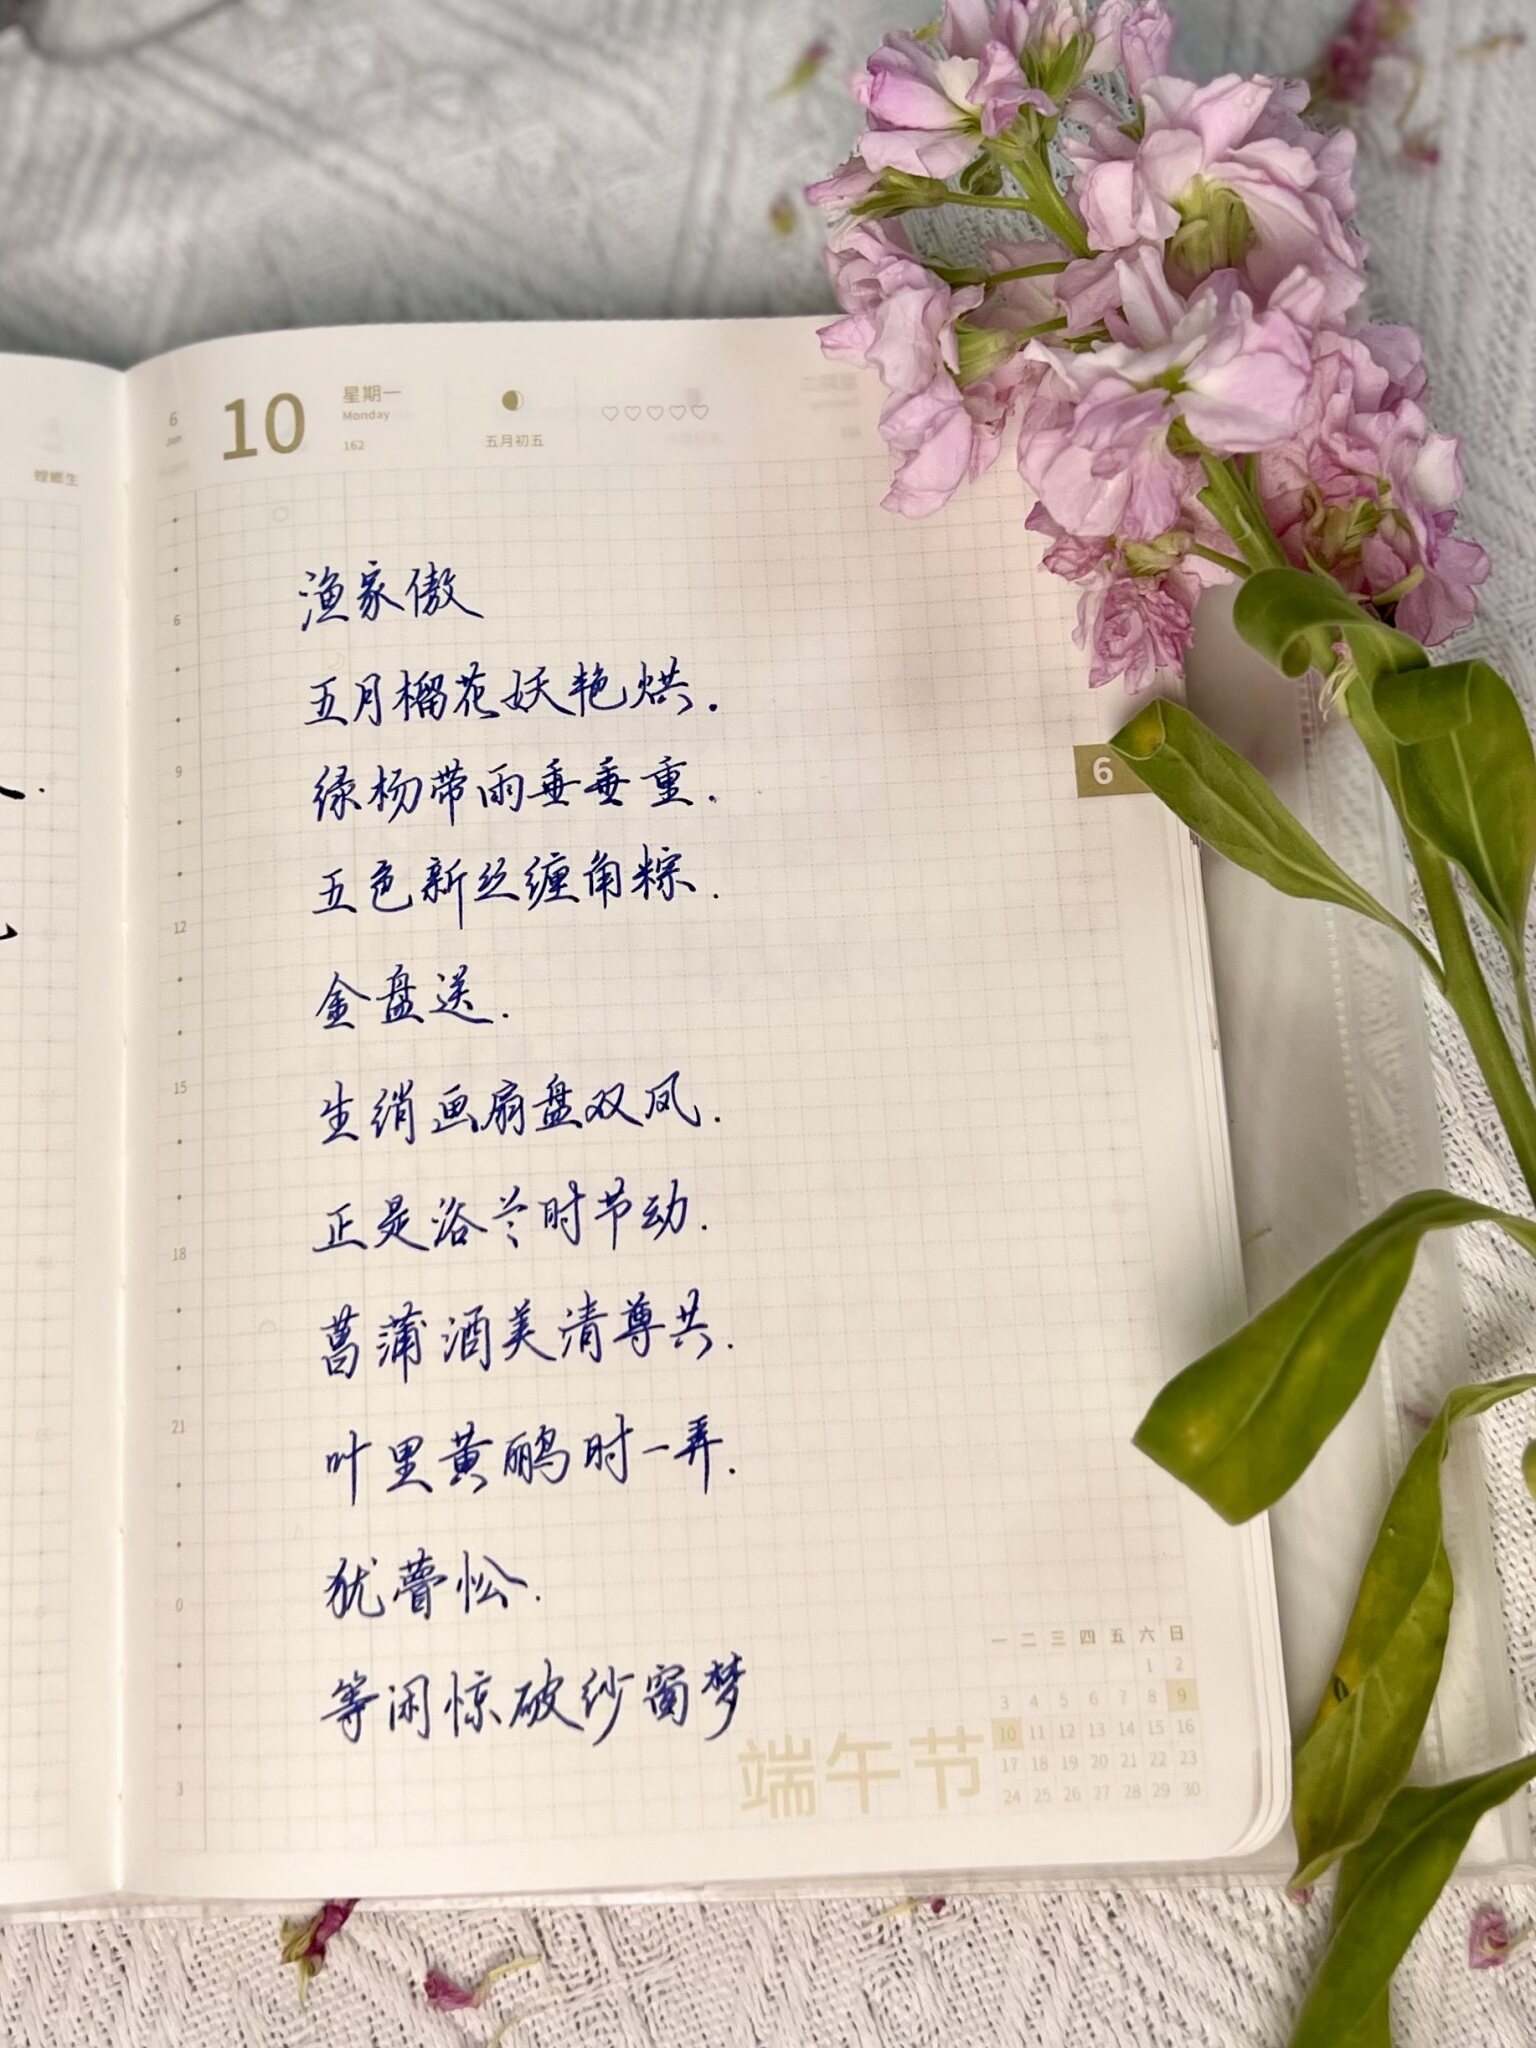 螳螂生
6
Jun
10
星期一
Monday
162
五月初五
渔家傲
五月榴花妖艳烘.
绿杨带雨垂垂重.
五色新丝缠角粽.
金盘送.
生绡画扇盘双凤.
正是浴兰时节动.
菖蒲酒美清尊共.
叶里黄鹂时一弄.
犹瞢忪.
等闲惊破纱窗梦
6
9
12
15
18
21
0
3
6
端午节
一 二 三 四 五 六 日
1 2
3 4 5 6 7 8 9
10 11 12 13 14 15 16
17 18 19 20 21 22 23
24 25 26 27 28 29 30